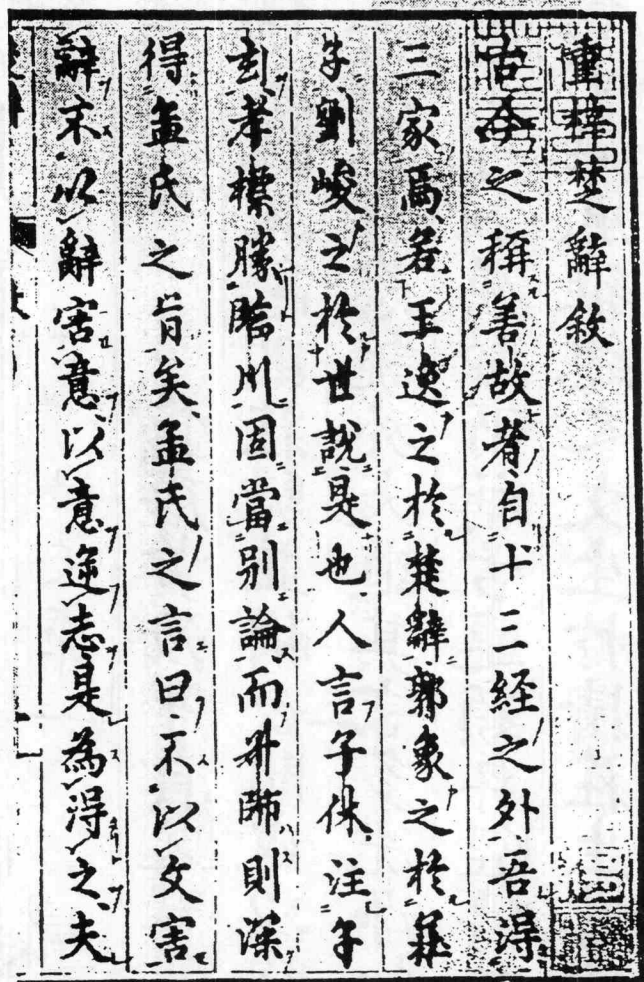 重梓楚辭敘
古今之稱善故者自十三經之外吾得
三家焉若王逸之於楚辭郭象之於莊
子劉峻之於世說是也人言子休注子
玄孝標勝臨川固當別論而叔師則深
得孟氏之旨矣孟氏之言曰不以文害
辭不以辭害意以意逆志是為得之夫